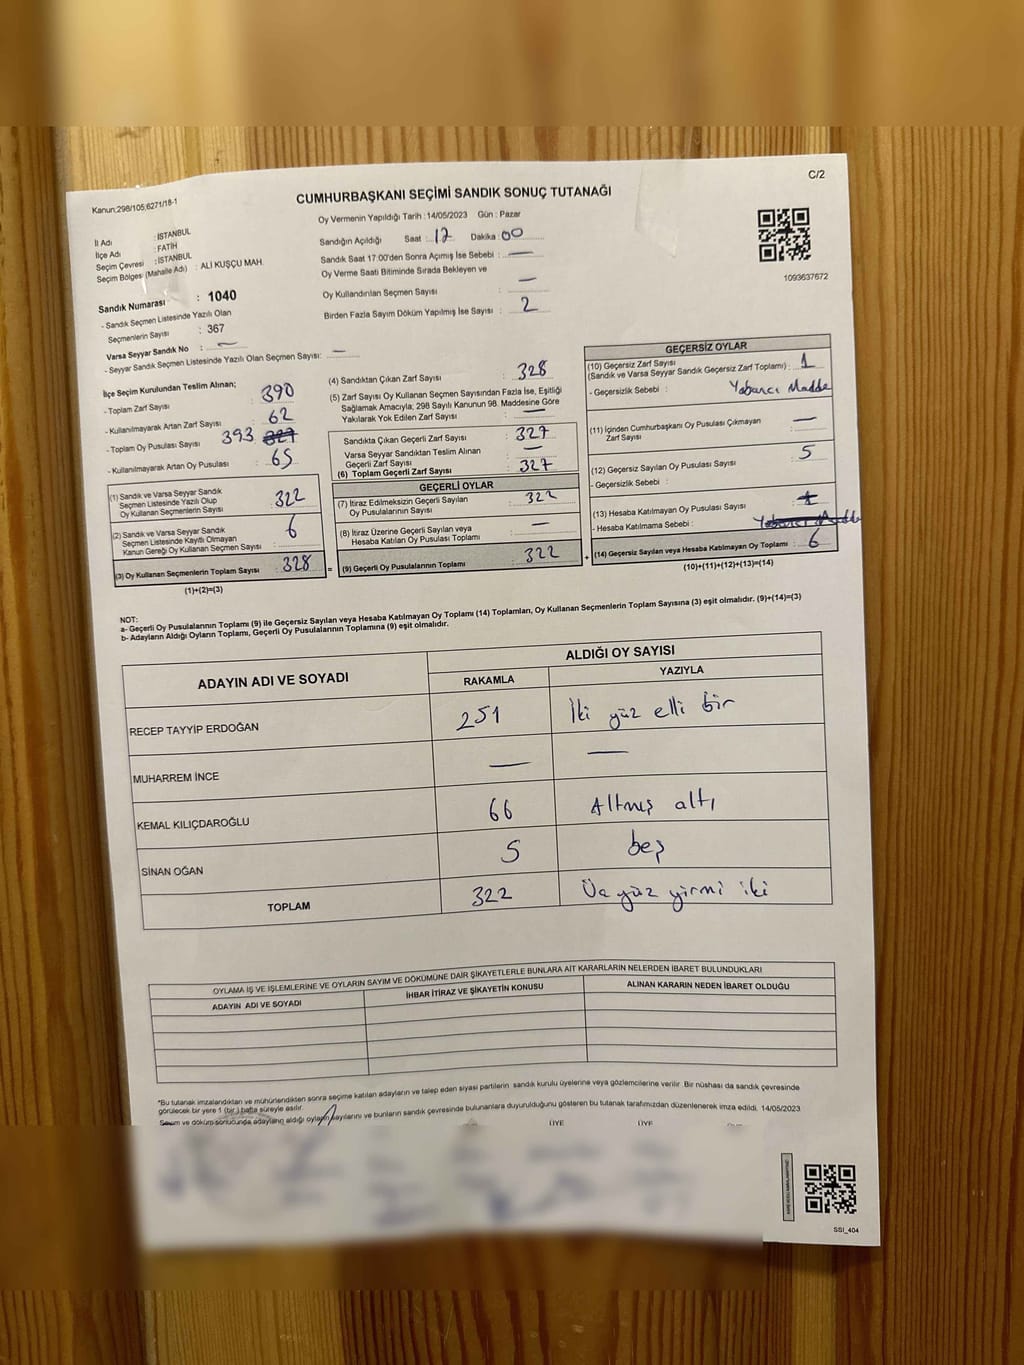 C/2
Kanun:298/105,6271/18-1
CUMHURBAŞKANI SEÇİMİ SANDIK SONUÇ TUTANAĞI
İl Adı : İSTANBUL
İlçe Adı : FATİH
Seçim Çevresi : İSTANBUL
Seçim Bölges (Mahalle Adı) : ALİ KUŞÇU MAH.
Sandık Numarası : 1040
- Sandık Seçmen Listesinde Yazılı Olan
Seçmenlerin Sayısı : 367
Varsa Seyyar Sandık No : —
- Seyyar Sandık Seçmen Listesinde Yazılı Olan Seçmen Sayısı: —
Oy Vermenin Yapıldığı Tarih : 14/05/2023 Gün : Pazar
Sandığın Açıldığı Saat : 17 Dakika : 00
Sandık Saat 17:00'den Sonra Açımış İse Sebebi : —
Oy Verme Saati Bitiminde Sırada Bekleyen ve
Oy Kullandırılan Seçmen Sayısı : —
Birden Fazla Sayım Döküm Yapılmış İse Sayısı : 2
1093637672
İlçe Seçim Kurulundan Teslim Alınan;
- Toplam Zarf Sayısı : 390
- Kullanılmayarak Artan Zarf Sayısı : 62
- Toplam Oy Pusulası Sayısı 393 327
- Kullanılmayarak Artan Oy Pusulası : 65
(1) Sandık ve Varsa Seyyar Sandık
Seçmen Listesinde Yazılı Olup
Oy Kullanan Seçmenlerin Sayısı : 322
(2) Sandık ve Varsa Seyyar Sandık
Seçmen Listesinde Kayıtlı Olmayan
Kanun Gereği Oy Kullanan Seçmen Sayısı : 6
(3) Oy Kullanan Seçmenlerin Toplam Sayısı : 328
(1)+(2)=(3)
(4) Sandıktan Çıkan Zarf Sayısı : 328
(5) Zarf Sayısı Oy Kullanan Seçmen Sayısından Fazla İse, Eşitliği
Sağlamak Amacıyla; 298 Sayılı Kanunun 98. Maddesine Göre
Yakılarak Yok Edilen Zarf Sayısı : —
Sandıkta Çıkan Geçerli Zarf Sayısı : 327
Varsa Seyyar Sandıktan Teslim Alınan
Geçerli Zarf Sayısı : —
(6) Toplam Geçerli Zarf Sayısı : 327
GEÇERLİ OYLAR
(7) İtiraz Edilmeksizin Geçerli Sayılan
Oy Pusulalarının Sayısı : 322
(8) İtiraz Üzerine Geçerli Sayılan veya
Hesaba Katılan Oy Pusulası Toplamı : —
=
(9) Geçerli Oy Pusulalarının Toplamı : 322
+
GEÇERSİZ OYLAR
(10) Geçersiz Zarf Sayısı
(Sandık ve Varsa Seyyar Sandık Geçersiz Zarf Toplamı) : 1
- Geçersizlik Sebebi : Yabancı Madde
(11) İçinden Cumhurbaşkanı Oy Pusulası Çıkmayan
Zarf Sayısı : —
(12) Geçersiz Sayılan Oy Pusulası Sayısı : 5
- Geçersizlik Sebebi :
(13) Hesaba Katılmayan Oy Pusulası Sayısı :
- Hesaba Katılmama Sebebi : Yabancı Madde
(14) Geçersiz Sayılan veya Hesaba Katılmayan Oy Toplamı : 6
(10)+(11)+(12)+(13)=(14)
NOT:
a- Geçerli Oy Pusulalarının Toplamı (9) ile Geçersiz Sayılan veya Hesaba Katılmayan Oy Toplamı (14) Toplamları, Oy Kullanan Seçmenlerin Toplam Sayısına (3) eşit olmalıdır. (9)+(14)=(3)
b- Adayların Aldığı Oyların Toplamı, Geçerli Oy Pusulalarının Toplamına (9) eşit olmalıdır.
ADAYIN ADI VE SOYADI ALDIĞI OY SAYISI
RAKAMLA YAZIYLA
RECEP TAYYİP ERDOĞAN 251 İki yüz elli bir
MUHARREM İNCE — —
KEMAL KILIÇDAROĞLU 66 Altmış altı
SİNAN OĞAN 5 beş
TOPLAM 322 Üç yüz yirmi iki
OYLAMA İŞ VE İŞLEMLERİNE VE OYLARIN SAYIM VE DÖKÜMÜNE DAİR ŞİKAYETLERLE BUNLARA AİT KARARLARIN NELERDEN İBARET BULUNDUKLARI
ADAYIN ADI VE SOYADI İHBAR İTİRAZ VE ŞİKAYETİN KONUSU ALINAN KARARIN NEDEN İBARET OLDUĞU
*Bu tutanak imzalandıktan ve mühürlendikten sonra seçime katılan adayların ve talep eden siyasi partilerin sandık kurulu üyelerine veya gözlemcilerine verilir. Bir nüshası da sandık çevresinde
görülecek bir yere 1 (bir ) hafta süreyle asılır.
Sayım ve döküm sonucunda adayların aldığı oyların sayılarını ve bunların sandık çevresinde bulunanlara duyurulduğunu gösteren bu tutanak tarafımızdan düzenlenerek imza edildi. 14/05/2023
ÜYE ÜYE
SSI_404